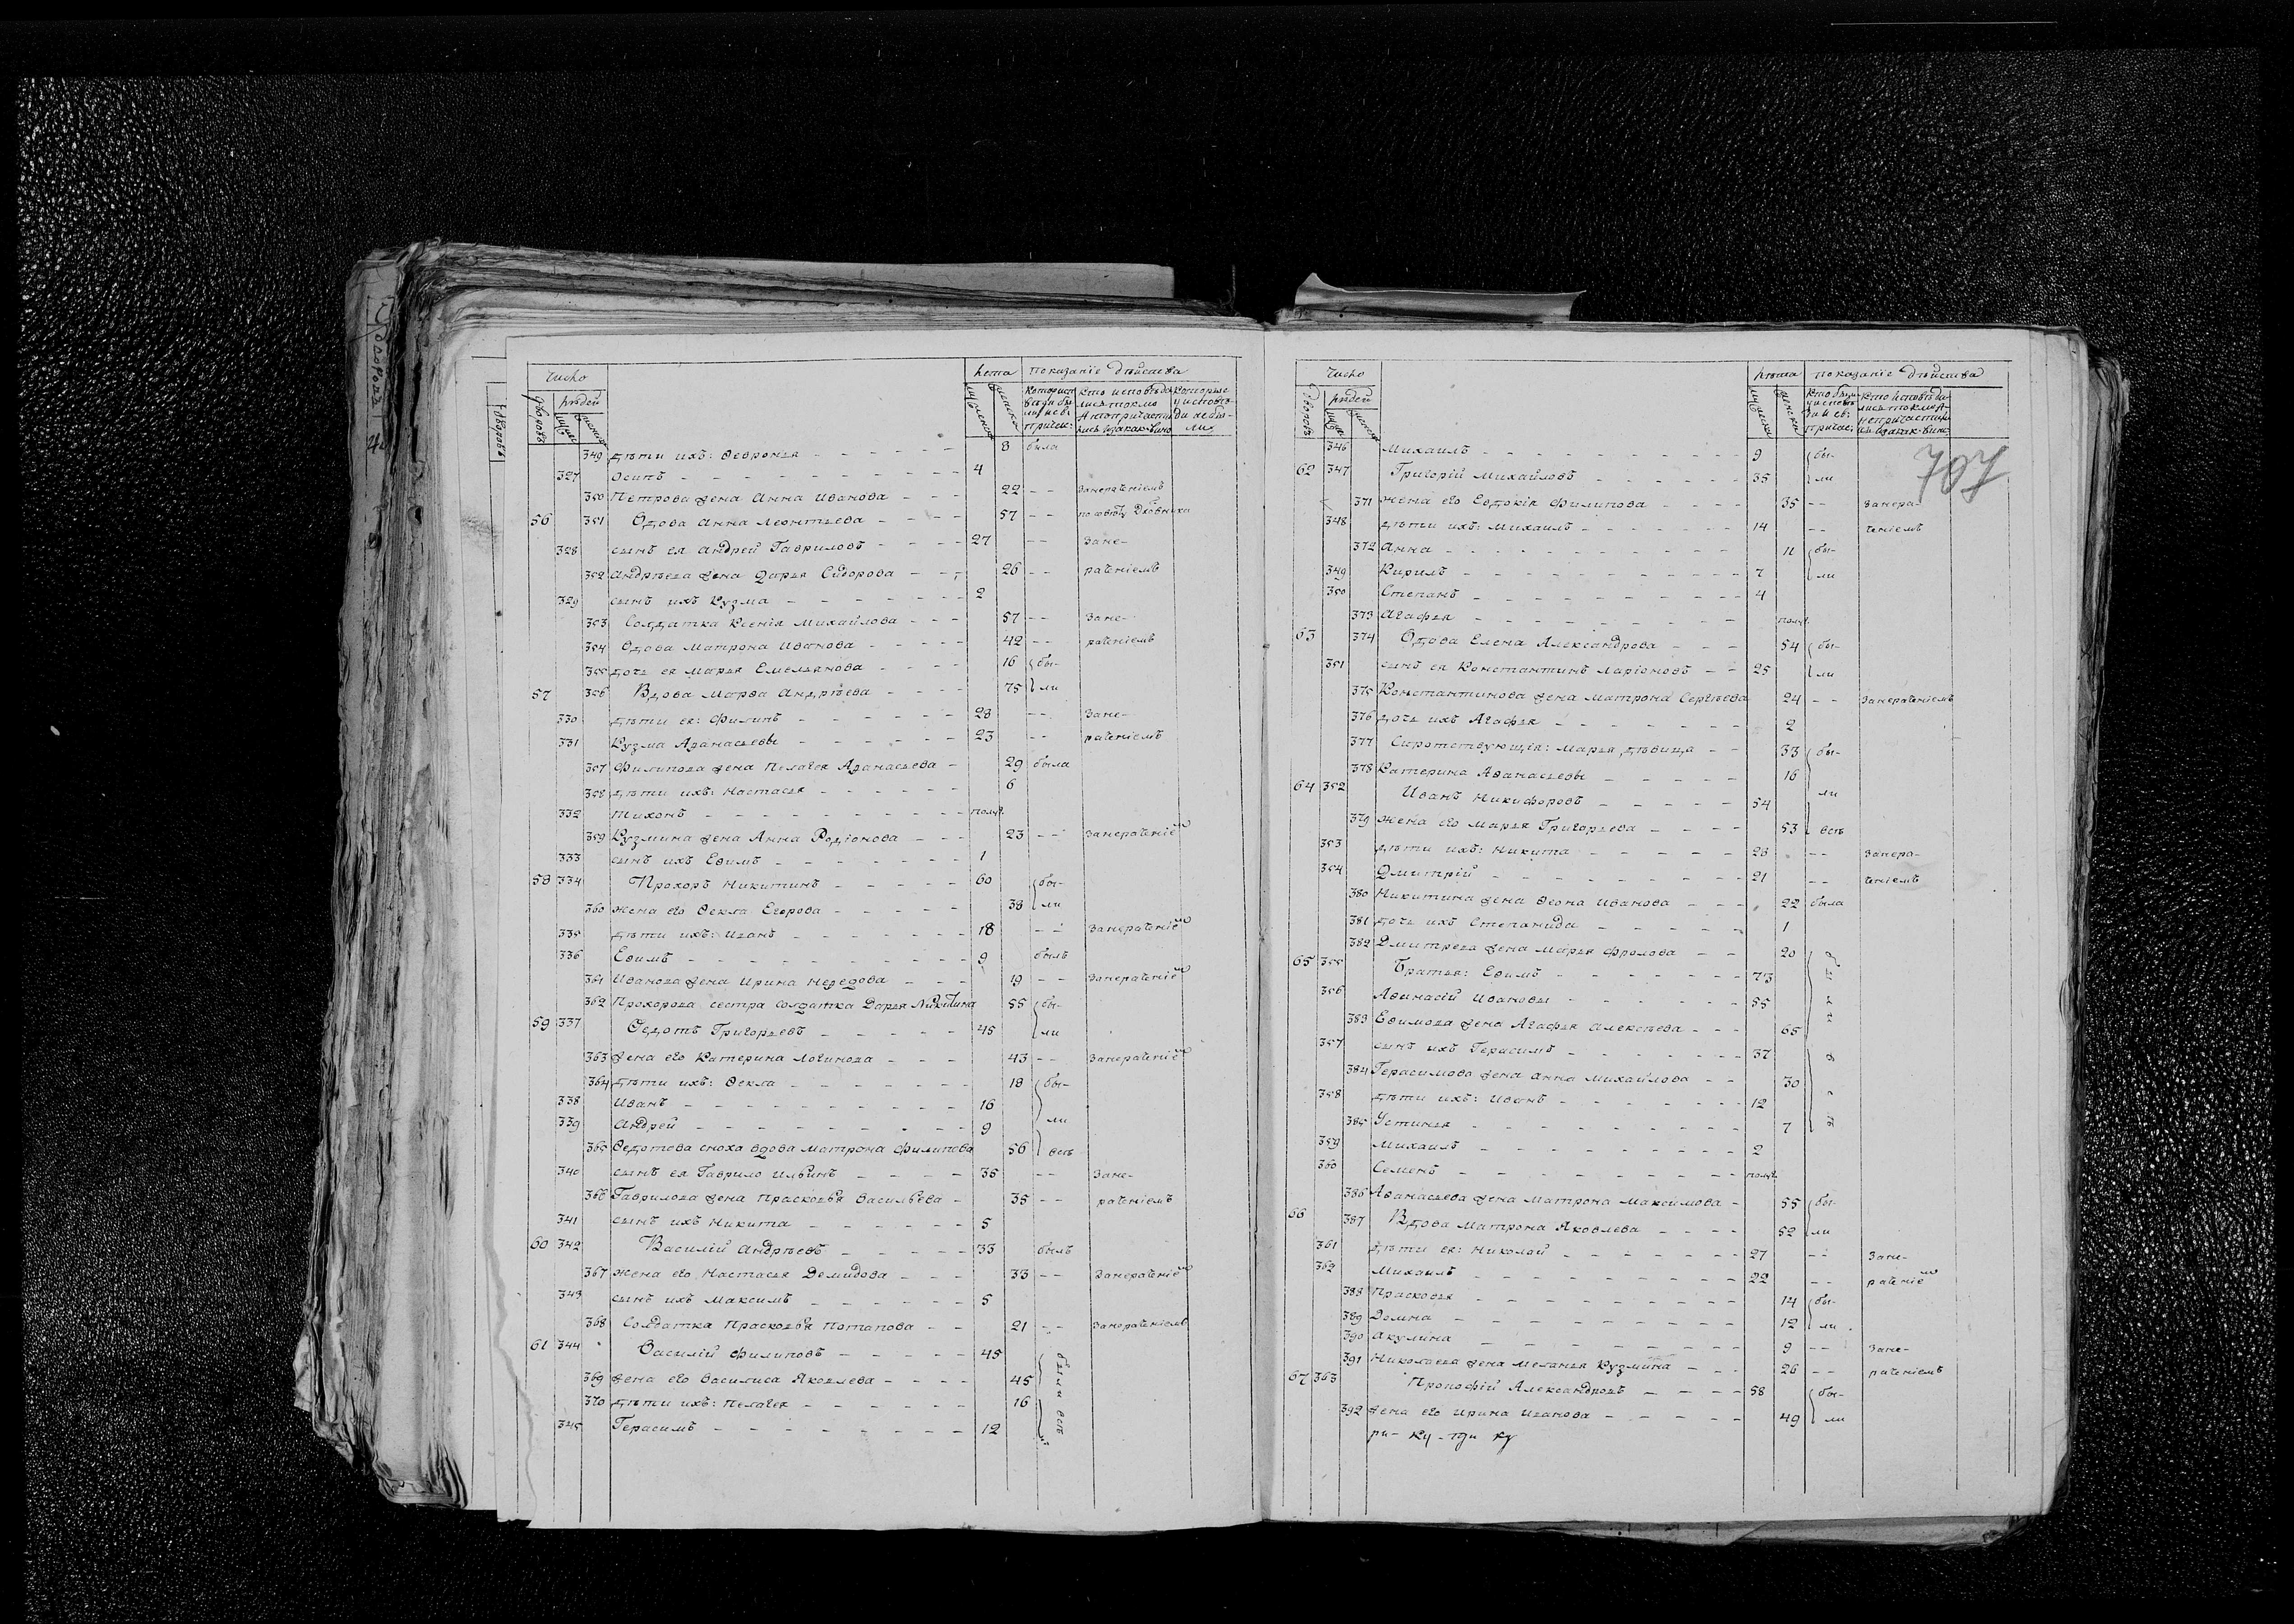 Число
Лета
Показаніе дѣйства
людей
349 дѣти ихъ: Ѳевронья 8 была
327 Осипъ 4
350 Петрова жена Анна Иванова 22 занераченіемъ
56 351 Вдова Анна Леонтьева 57
328 сынъ ея Андрей Гавриловъ 27 зане-
352 Андрѣева жена Дарья Сидорова 26 раченіемъ
329 сынъ ихъ Кузма 2
353 Солдатка Ксенія Михайлова 57 зане-
354 Вдова Матрона Иванова 42 раченіемъ
355 дочь ея Марья Емельянова 16 бы-
57 356 Вдова Марѳа Андрѣева 75 ли
330 дѣти ея: Филипъ 28 зане-
331 Кузма Аѳанасьевы 23 раченіемъ
357 Филипова жена Пелагея Аѳанасьева 29 была
358 дѣти ихъ: Настасья 6
332 Тихонъ полуг.
359 Кузмина жена Анна Родіонова 23 занераченіемъ
333 сынъ ихъ Евимъ 1
58 334 Прохоръ Никитинъ 60 бы-
360 жена его Ѳекла Егорова 38 ли
335 дѣти ихъ: Иванъ 18 занераченіемъ
336 Евимъ 9 былъ
361 Иванова жена Ирина 19 занераченіемъ
362 Прохорова сестра солдатка Дарья Никитина 55 бы-
59 337 Ѳедотъ Григорьевъ 45 ли
363 жена его Катерина Логинова 43 занераченіемъ
364 дѣти ихъ: Ѳекла 18 бы-
338 Иванъ 16
339 Андрей 9 ли
365 Ѳедотова сноха вдова Матрона Филипова 56 всѣ
340 сынъ ея Гаврило Ильинъ 35 зане-
366 Гаврилова жена Прасковья Васильева 35 раченіемъ
341 сынъ ихъ Никита 5
60 342 Василій Андрѣевъ 33 былъ
367 жена его Настасья Демидова 33 занераченіемъ
343 сынъ ихъ Максимъ 5
368 Солдатка Прасковья Потапова 21 занераченіемъ
61 344 Василій Филиповъ 45 были всѣ
369 жена его Василиса Яковлева 45
370 дѣти ихъ: Пелагея 16
345 Герасимъ 12
Число
Лѣта
Показаніе дѣйства
людей
707
346 Михаилъ 9 бы-
62 347 Григорій Михайловъ 35 ли
371 жена его Евдокія Филипова 35 занера-
348 дѣти ихъ: Михаилъ 14 ченіемъ
372 Анна 11 бы-
349 Кирилъ 7 ли
350 Степанъ 4
373 Агафья полуг.
63 374 Вдова Елена Александрова 54 бы-
351 сынъ ея Константинъ Ларіоновъ 25 ли
375 Константинова жена Матрона Сергѣева 24 занераченіемъ
376 дочь ихъ Агафья 2
377 Сиротствующія: Марья дѣвица 33 бы-
378 Катерина Аѳанасьевы 16
64 352 Иванъ Никифоровъ 54 ли
379 жена его Марья Григорьева 53 всѣ
353 дѣти ихъ: Никита 28 занера-
354 Дмитрій 21 ченіемъ
380 Никитина жена Ѳеона Иванова 22 была
381 дочь ихъ Степанида 1
382 Дмитрева жена Марья Фролова 20
65 355 Братья: Евимъ 73
356 Аѳинасій Ивановы 55
383 Евимова жена Агафья Алексѣева 65
357 сынъ ихъ Герасимъ 37
384 Герасимова жена Анна Михайлова 30
358 дѣти ихъ: Иванъ 12
385 Устинья 7
359 Михаилъ 2
360 Семенъ полуг.
386 Аѳанасьева жена Матрона Максимова 55 бы-
66 387 Вдова Матрона Яковлева 52 ли
361 дѣти ея: Николай 27 зане-
362 Михаилъ 22 раченіемъ
388 Прасковья 14 бы-
389 Домна 12 ли
390 Акулина 9 зане-
391 Николаева жена Меланья Кузмина 26 раченіемъ
67 363 Прокофій Александровъ 58 бы-
392 жена его Ирина Иванова 49 ли